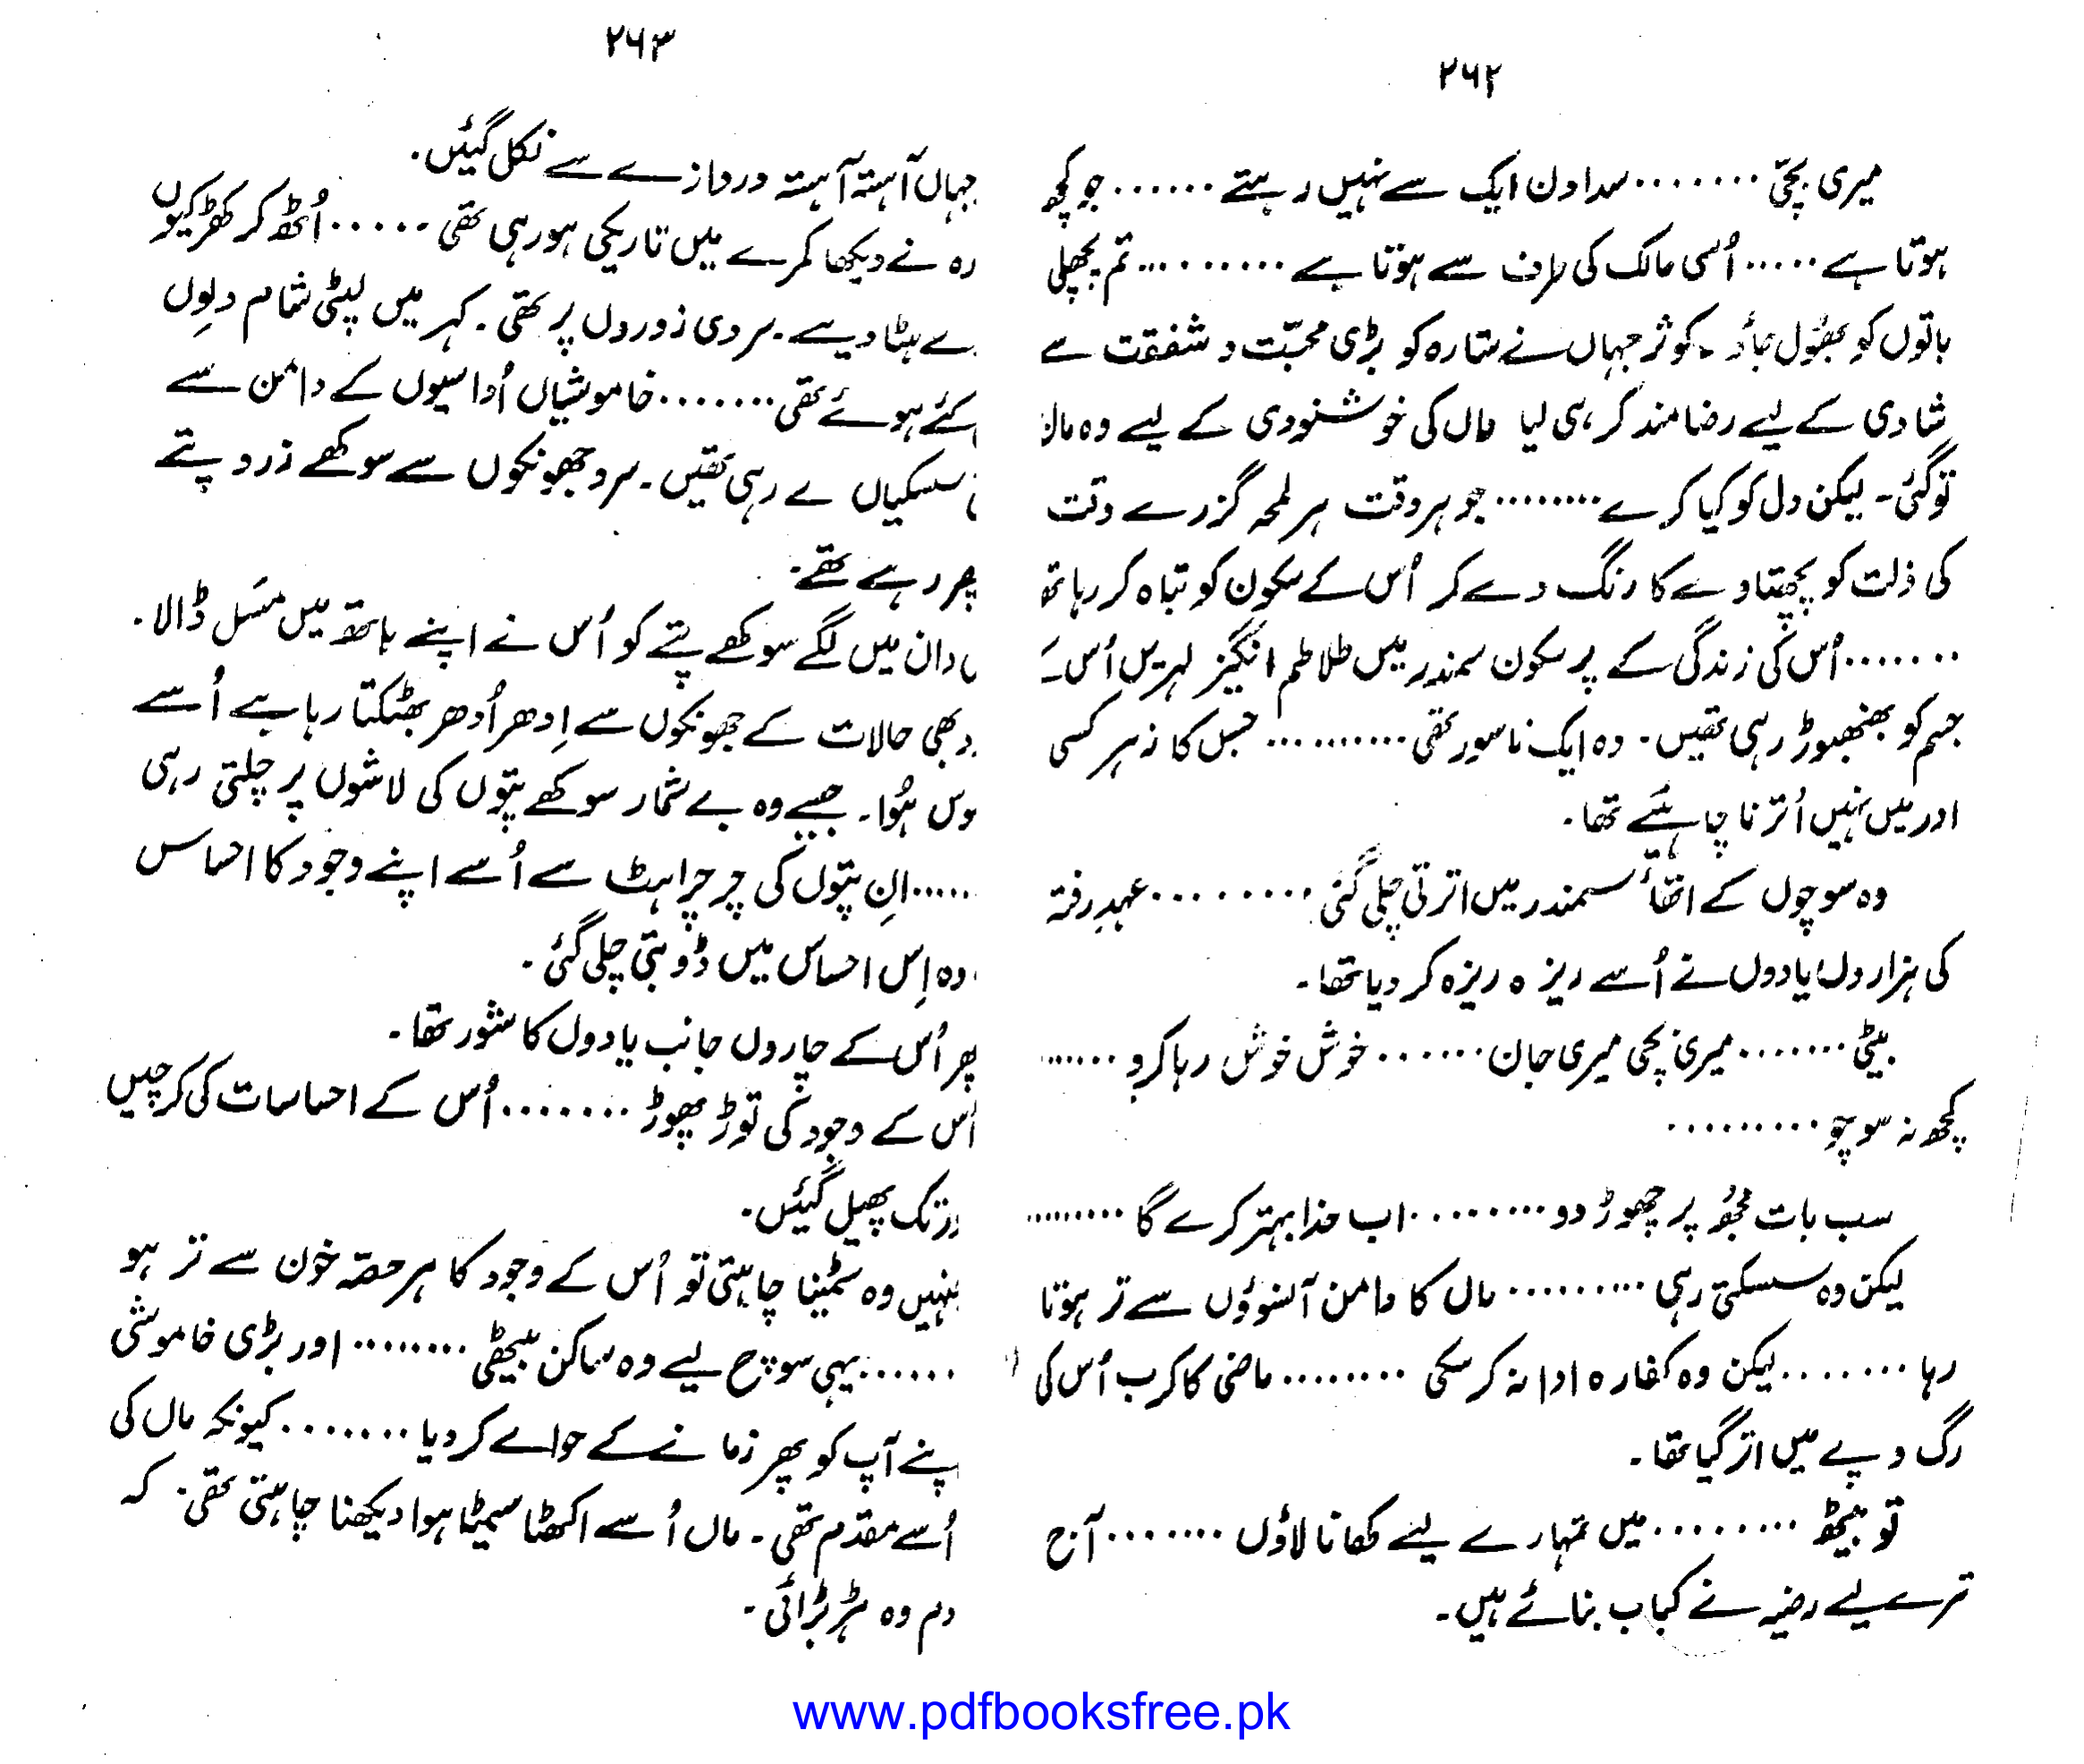 ۲۶۲
میری بچّی ........ سدا دن ایک سے نہیں رہتے ...... جو کچھ
ہوتا ہے ..... اُسی مالک کی طرف سے ہوتا ہے .......... تم پچھلی
باتوں کو بھُول جاؤ ۔ کوثر جہاں نے ستارہ کو بڑی محبّت و شفقت سے
شادی کے لیے رضامند کر ہی لیا ماں کی خوشنودی کے لیے وہ مان
تو گئی ۔ لیکن دل کو کیا کرے ........ جو ہر وقت ہر لمحہ گزرے وقت
کی ذلت کو پچھتاوے کا رنگ دے کر اُس کے سکون کو تباہ کر رہا تھ
....... اُس کی زندگی کے پر سکون سمندر میں طلاطم انگیز لہریں اُس کے
جسم کو بھنبھوڑ رہی تھیں ۔ وہ ایک ناسور تھی .......... جس کا زہر کسی
اور میں نہیں اُترنا چاہیئے تھا ۔
وہ سوچوں کے اتھاٗ سمندر میں اترتی چلی گئی ........ عہدِ رفتہ
کی ہزاروں یادوں نے اُسے ریزہ ریزہ کر دیا تھا ۔
بیٹی ....... میری بچی میری جان ...... خوش خوش رہا کرو ......
کچھ نہ سوچو .........
سب بات مجھُ پر چھوڑ دو ........ اب خدا بہتر کرے گا .........
لیکن وہ سسکتی رہی ......... ماں کا دامن آنسوؤں سے تر ہوتا
رہا ....... لیکن وہ کفارہ ادا نہ کر سکی ........ ماضی کا کرب اُس کی
رگ و پے میں اتر گیا تھا ۔
تو بیٹھ ........ میں تمہارے لیے کھانا لاؤں ....... آج
ترے لیے رضیہ نے کباب بنائے ہیں ۔
۲۶۳
جہاں آہستہ آہستہ دروازے سے نکل گیئں ۔
رہ نے دیکھا کمرے میں تاریکی ہو رہی تھی ...... اُٹھ کر کھڑکیوں
ے ہٹا دیے ۔ سردی زوروں پر تھی ۔ کہر میں لپٹی شام دلوں
کئے ہوئے تھی ....... خاموشیاں اُداسیوں کے دامن سے
سسکیاں لے رہی تھیں ۔ سرد جھونکوں سے سوکھے زرد پتے
رہے تھے ۔
دان میں لگے سوکھے پتے کو اُس نے اپنے ہاتھ میں مسَل ڈالا ۔
بھی حالات کے جھونکوں سے اِدھر اُدھر بھٹکتا رہا ہے اُسے
وس ہُوا ۔ جیسے وہ بے شمار سوکھے پتوں کی لاشوں پر چلتی رہی
...... انِ پتوں کی چرچراہٹ سے اُسے اپنے وجود کا احساس
وہ اِس احساس میں ڈوبتی چلی گئی ۔
پھر اُس کے چاروں جانب یادوں کا شور تھا ۔
اُس کے وجود کی توڑ پھوڑ ....... اُس کے احساسات کی کرچیں
تک پھیل گیئں ۔
نہیں وہ سمٹینا چاہتی تو اُس کے وجود کا ہر حصّہ خون سے تر ہو
...... یہی سوچ لیے وہ ساکن بیٹھی ........ اور بڑی خاموشی
پنے آپ کو پھر زمانے کے حوالے کر دیا ....... کیونکہ ماں کی
اُسے مقدم تھی ۔ ماں اُسے اکھٹا سمیٹا ہوا دیکھنا چاہتی تھی ۔ کہ
دم وہ ہڑبڑائی ۔
www.pdfbooksfree.pk